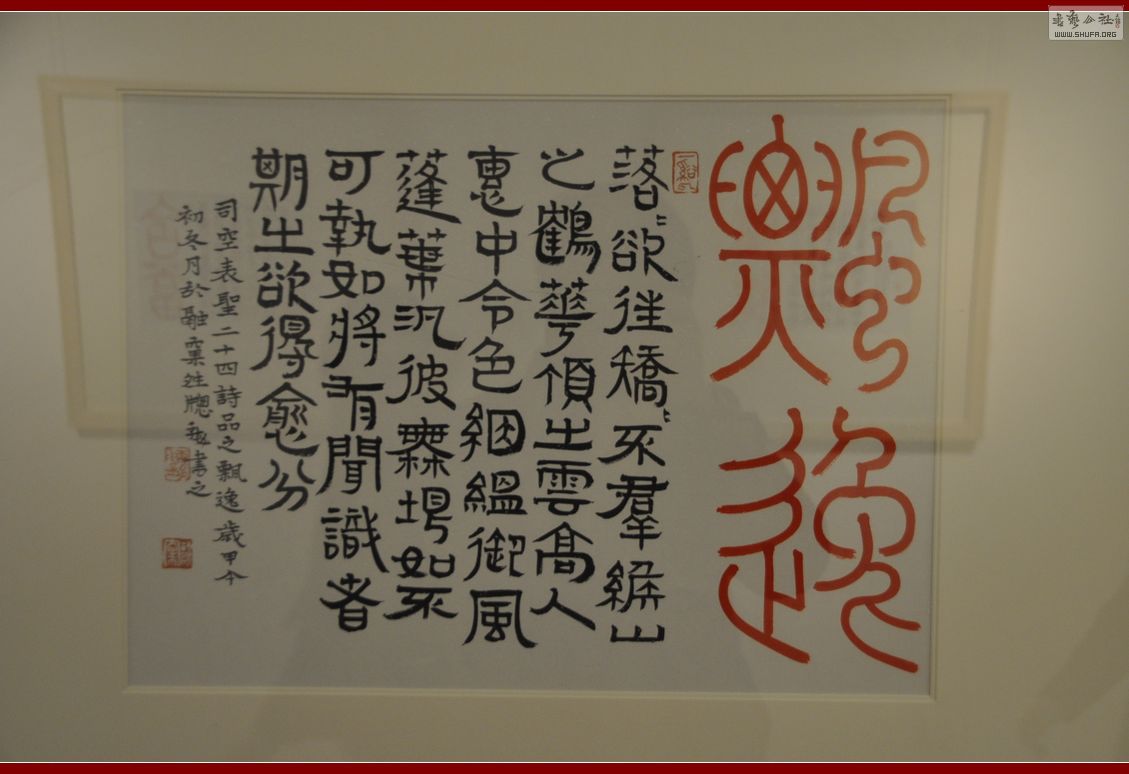 飄逸
落〻欲往矯〻不羣緱山
之鶴華頂之雲高人
惠中令色絪縕御風
蓬葉汎彼無垠如不
可執如將有聞識者
期之欲得愈分
司空表聖二十四詩品之飄逸歲甲午
初冬月於融書之
書藝公社
WWW.SHUFA.ORG